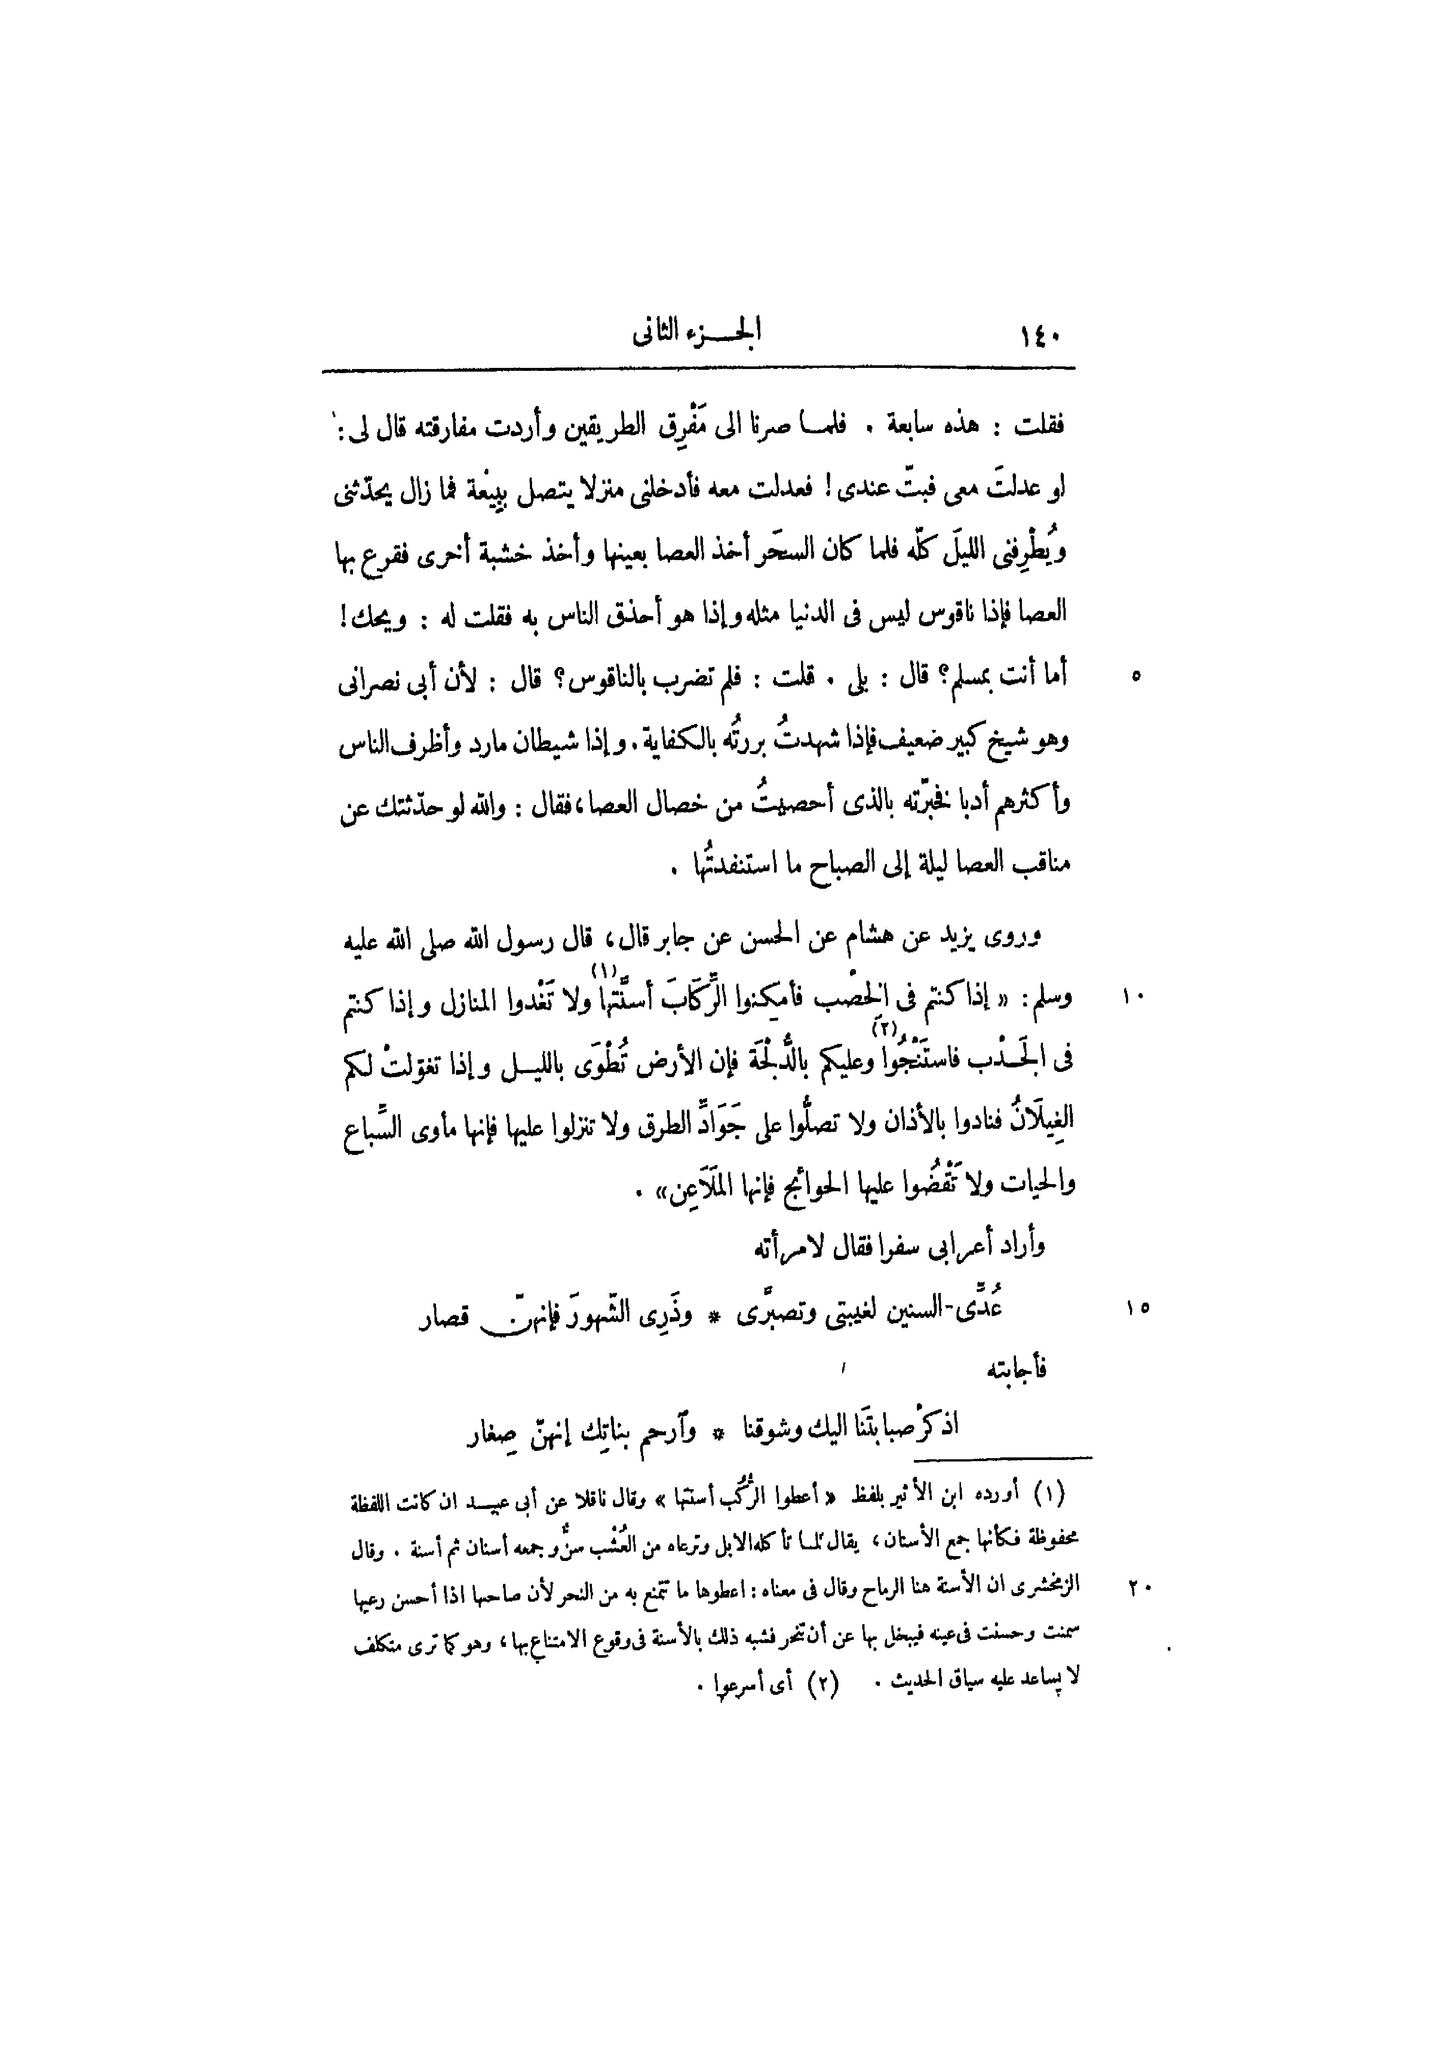 ١٤٠ الجـــزء الثانى
فقلت : هذه سابعة . فلمــا صرنا الى مَفْرِق الطريقين وأردت مفارقته قال لى :
لو عدلتَ معى فبتّ عندى ! فعدلت معه فأدخلنى منزلا يتصل ببِيْعة فما زال يحدّثنى
ويُطْرِفنى الليلَ كلّه فلما كان السحَر أخذ العصا بعينها وأخذ خشبة أخرى فقرع بها
العصا فإذا ناقوس ليس فى الدنيا مثله وإذا هو أحذق الناس به فقلت له : ويحك !
أما أنت بمسلم؟ قال : بلى . قلت : فلم تضرب بالناقوس؟ قال : لأن أبى نصرانى ٥
وهو شيخ كبير ضعيف فإذا شهدتُ بررتُه بالكفاية . وإذا شيطان مارد وأظرف الناس
وأكثرهم أدبا فخبرّته بالذى أحصيتُ من خصال العصا، فقال : والله لو حدّثتك عن
مناقب العصا ليلة إلى الصباح ما استنفدتُها .
وروى يزيد عن هشام عن الحسن عن جابر قال، قال رسول الله صلى الله عليه
وسلم : « إذا كنتم فى الخِصْب فأمكنوا الرِّكَابَ أسنَّتها (١) ولا تَعْدوا المنازل وإذا كنتم ١٠
فى الجَــدْب فاستَنْجُوا (٢) وعليكم بالدُّلْجَة فإن الأرض تُطْوَى بالليــل وإذا تغوّلتْ لكم
الغِيلَانُ فنادوا بالأذان ولا تصلُّوا على جَوَادِّ الطرق ولا تنزلوا عليها فإنها مأوى السِّباع
والحيات ولا تَقْضُوا عليها الحوائج فإنها المَلَاعِن » .
وأراد أعرابى سفرا فقال لامرأته
عُدِّى السنين لغيبتى وتصبرَّى * وذَرِى الشّهورَ فإنهنّ قصار ١٥
فأجابته
اذكرْ صبابتَنا اليك وشوقنا * وٱرحم بناتِك إنهنّ صِغار
(١) أورده ابن الأثير بلفظ « أعطوا الرُّكُب أسنتها » وقال ناقلا عن أبى عبيــد ان كانت اللفظة
محفوظة فكأنها جمع الأسنان، يقال لمــا تأكله الابل وترعاه من العُشْب سنٌّ وجمعه أسنان ثم أسنة . وقال
الزمخشرى ان الأسنة هنا الرماح وقال فى معناه : اعطوها ما تتمنع به من النحر لأن صاحبها اذا أحسن رعيها ٢٠
سمنت وحسنت فى عينه فيبخل بها عن أن تنحر فشبه ذلك بالأسنة فى وقوع الامتناع بها، وهو كما ترى متكلف
لا يساعد عليه سياق الحديث . (٢) أى أسرعوا .